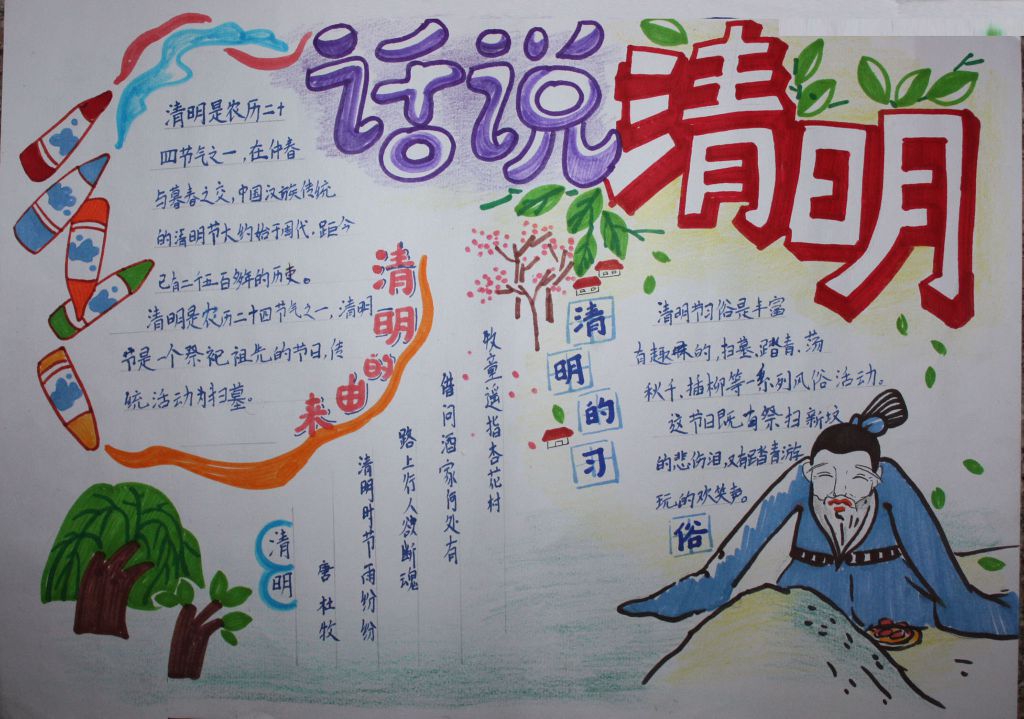 话说清明
清明是农历二十
四节气之一,在仲春
与暮春之交,中国汉族传统
的清明节大约始于周代,距今
已有二千五百多年的历史。
清明是农历二十四节气之一,清明
节是一个祭祀祖先的节日,传
统活动为扫墓。
清明的由来
清明的习俗
清明节习俗是丰富
有趣味的,扫墓、踏青、荡
秋千、插柳等一系列风俗活动。
这节日既有祭扫新坟
的悲伤泪,又有踏青游
玩的欢笑声。
清明
唐 杜牧
清明时节雨纷纷
路上行人欲断魂
借问酒家何处有
牧童遥指杏花村